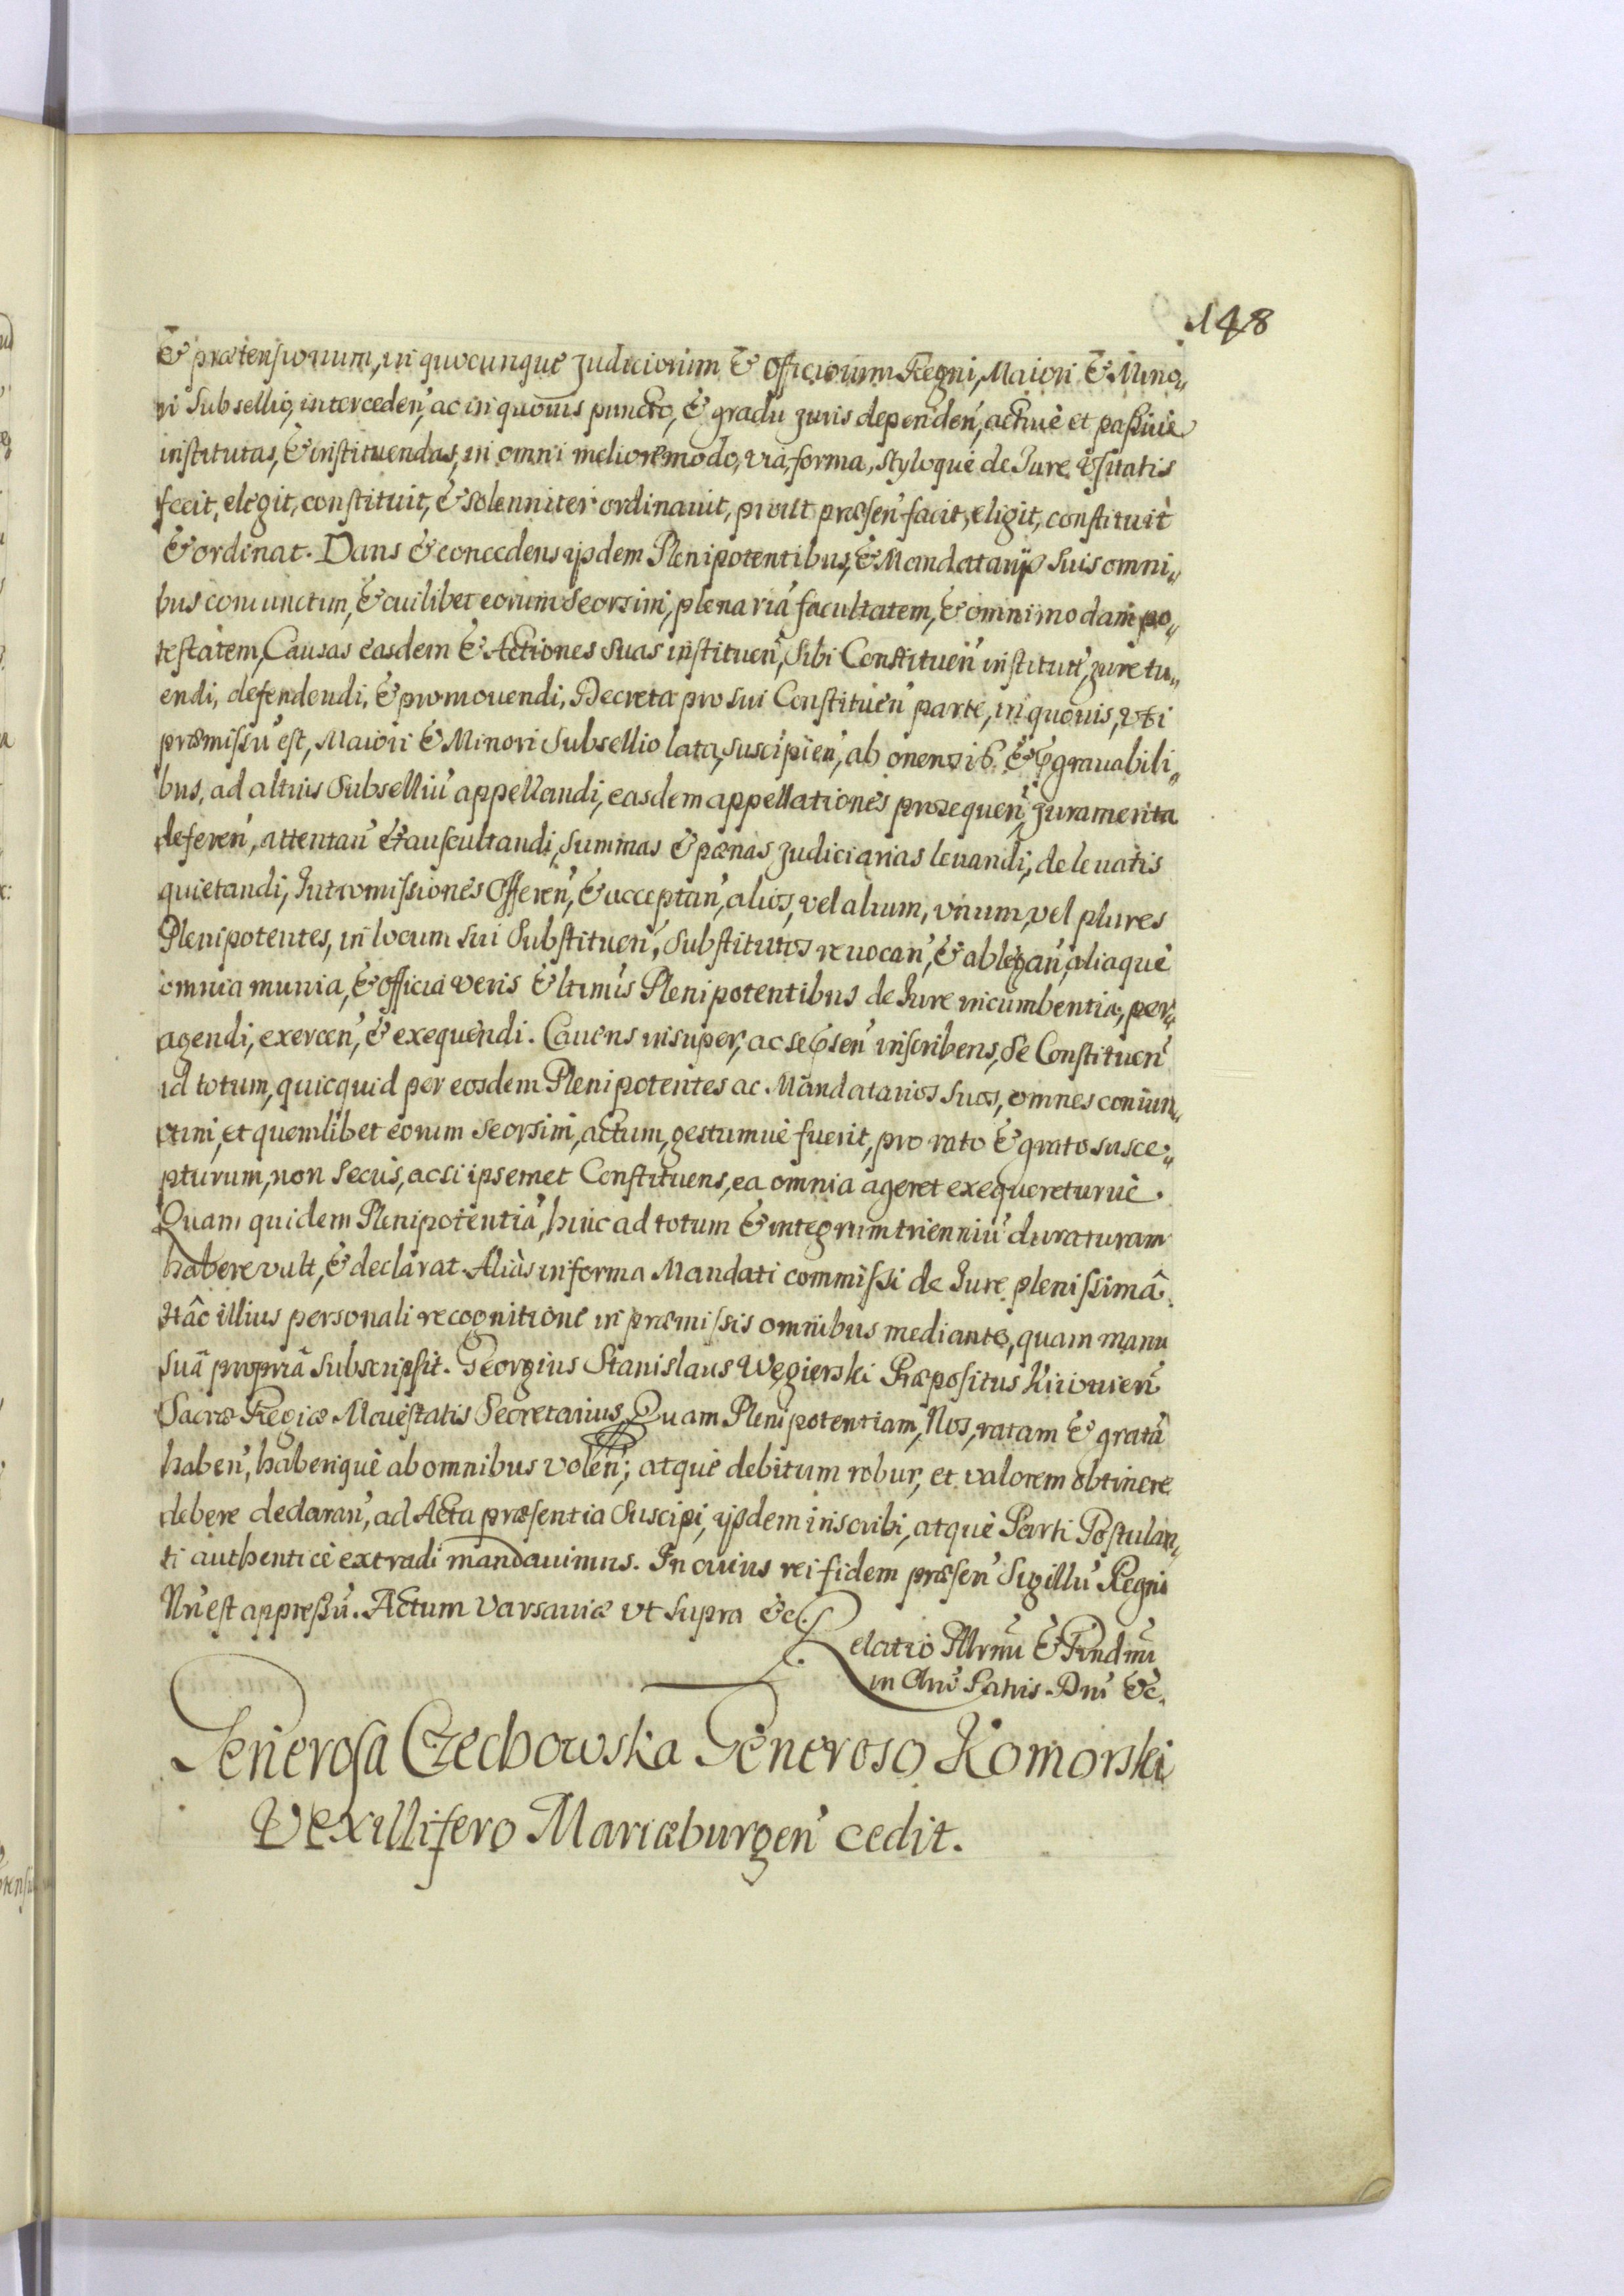 148
& prætensionum, in quocunque Judiciorum & Officiorum Regni, Maiori & Mino„
ri Subsellio, interceden̄, ac in quovis puncto, & gradu juris dependen̄, active et passive
institutas, & instituendas, in omni meliore modo, via, forma, styloque de Jure usitatis
fecit, elegit, constituit, & solenniter ordinavit, prout præsen̄ facit, eligit, constituit
& ordinat. Dans & concedens ijsdem Plenipotentibus, & Mandatarijs suis omni„
bus coniunctim, & cuilibet eorum seorsim, plenariā facultatem, & omnimodam po„
testatem, Causas easdem & Actiones suas instituen̄, sibi Constituen̄ institut̄, jure tu„
endi, defendendi, & promovendi, Decreta pro sui Constituen̄ parte, in quovis, uti
præmissū est, Maiori & Minori Subsellio lata, suscipien̄, ab onerosis & gravabili„
bus, ad altius Subselliū appellandi, easdem appellationes prosequen̄, Juramenta
deferen̄, attentan̄ & auscultandi, summas & pœnas judiciarias levandi, de levatis
quietandi, Intromissiones Offeren̄, & acceptan̄, alios, vel alium, unum, vel plures
Plenipotentes, in locum sui Substituen̄, substitutos revocan̄, & ablegan̄, aliaque
omnia munia, & officia veris & ltimis Plenipotentibus de Jure incumbentia, per„
agendi, exercen̄, & exequendi. Cavens insuper, ac se præsen̄ inscribens, se Constituen̄
id totum, quicquid per eosdem Plenipotentes ac Mandatarios suos, omnes coniun„
ctim, et quemlibet eorum seorsim, actum, gestumve fuerit, pro rato & grato susce„
pturum, non secus, ac si ipsemet Constituens, ea omnia ageret exequereturve.
Quam quidem Plenipotentiā, hinc ad totum & integrum trienniū duraturam
habere vult, & declarat. Aliàs in forma Mandati commissi de Jure plenissimâ.
Hâc illius personali recognitione in præmissis omnibus mediante, quam manu
suâ propriâ subscripsit. Georgius Stanislaus Węgierski Præpositus Kiiovien̄
Sacræ Regiæ Maiestatis Secretarius. Quam Plenipotentiam, Nos, ratam & gratā
haben̄, haberique ab omnibus volen̄; atque debitum robur, et valorem obtinere
debere declaran̄, ad Acta præsentia suscipi, ijsdem inscribi, atque Parti Postulan„
ti authentice extradi mandavimus. In cuius rei fidem præsen̄ Sigillū Regni
Nr̄m est appressū. Actum Varsaviæ ut supra &c.
Relatio Illrmi & Rndmi
in Chrō Patris Dni &c.
Generosa Czechowska Generoso Komorski
Vexillifero Mariæburgen̄ cedit.